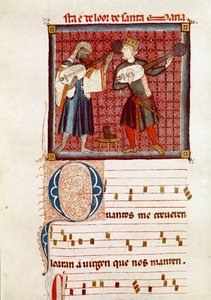 sta é de loor de santa maria
Quantos me creveren
loaran a virgen que nos manten.